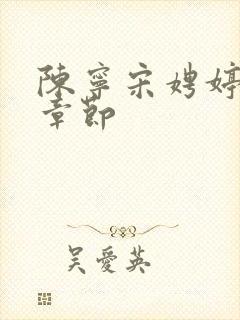 陳寧宋娉婷
章節
吳愛英